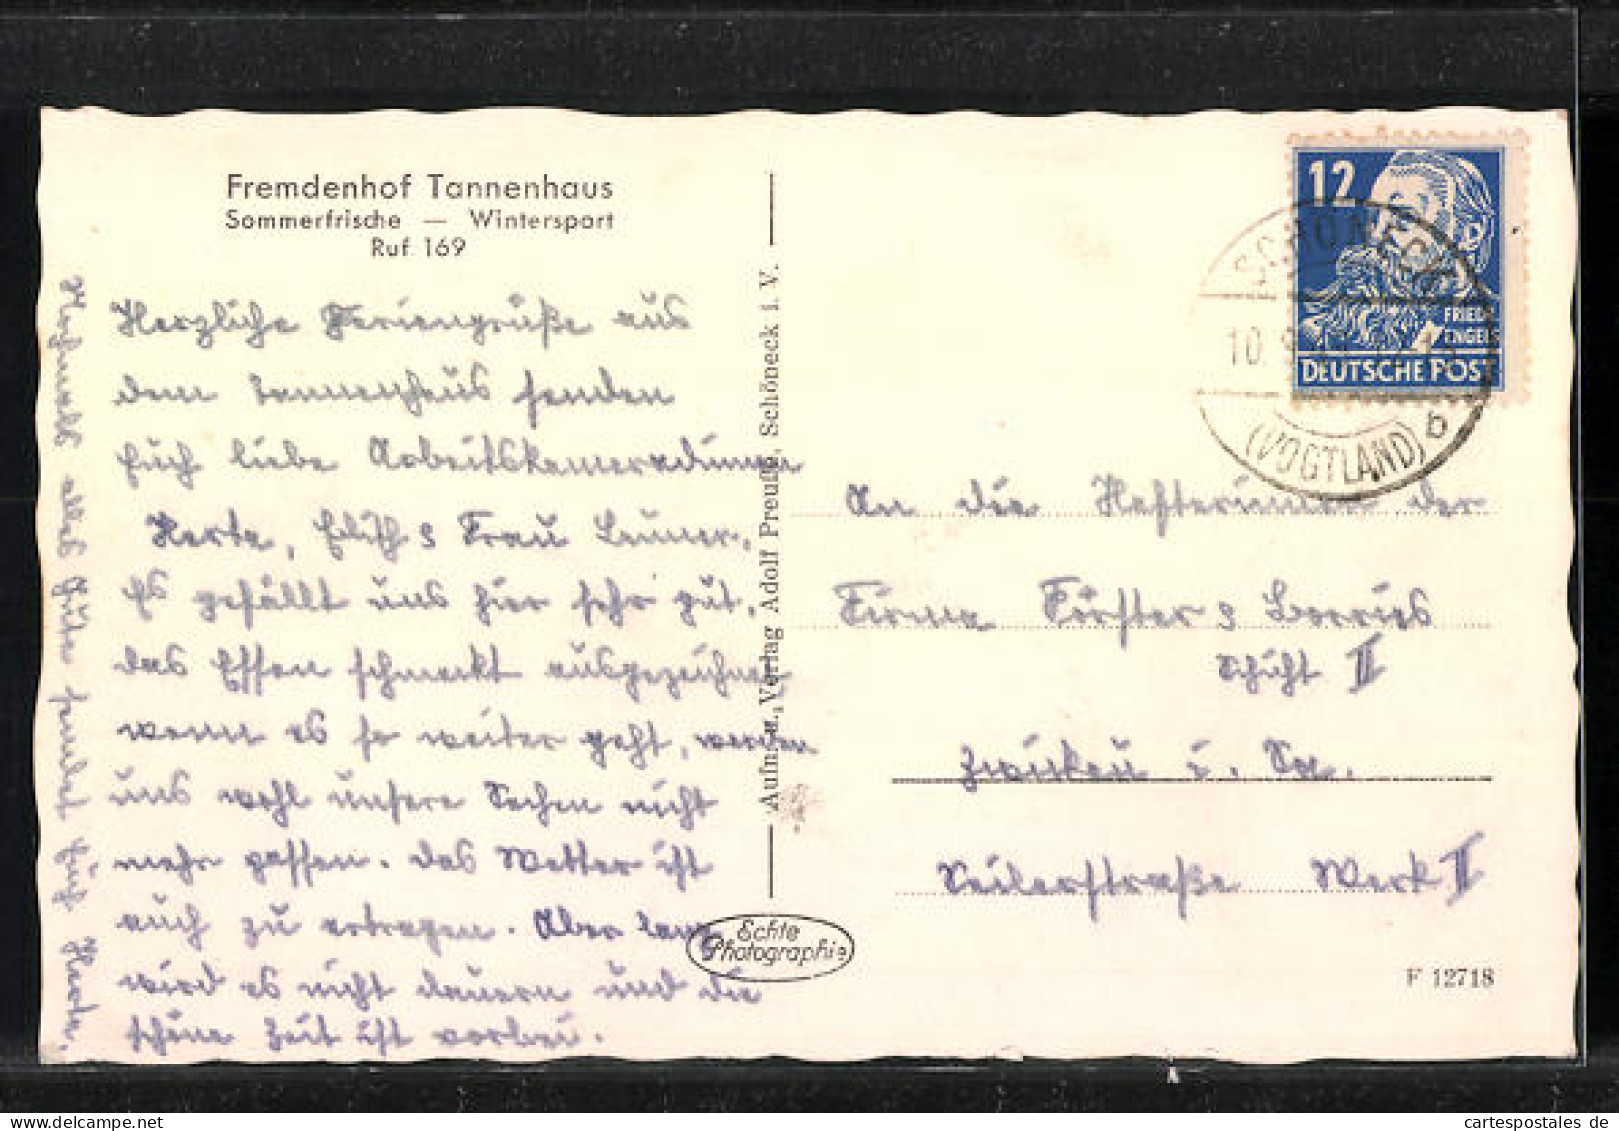 Fremdenhof Tannenhaus
Sommerfrische — Wintersport
Ruf 169
Herzliche Feriengrüße aus
dem Tannenhaus senden
Euch liebe Arbeitskameradinnen
Herta, Edith &amp; Frau
Es gefällt uns hier sehr gut,
das Essen schmeckt ausgezeichnet
wenn es so weiter geht, werden
uns wohl unsere Sachen nicht
mehr passen. Das Wetter ist
auch zu ertragen. Aber lang
wird es nicht dauern und die
schöne Zeit ist vorbei.
Nochmals alles Gute sendet Euch Herta.
Aufn. u. Verlag Adolf Preuße, Schöneck i. V.
Echte
Photographie
12
FRIED
ENGELS
DEUTSCHE POST
SCHÖNECK
10.
(VOGTLAND)
b
An die Hefterinnen der
Firma Förster & Borries
Schicht II
Zwickau i. Sa.
Seilerstraße Werk II
F 12718
cartespostales de